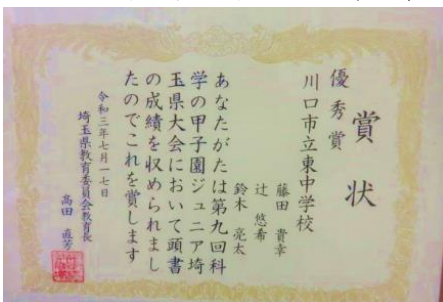 賞状
優秀賞
川口市立東中学校
藤田 貴幸
辻 悠希
鈴木 亮太
あなたがたは第九回科
学の甲子園ジュニア埼
玉県大会において頭書
の成績を収められまし
たのでこれを賞します
令和三年七月一七日
埼玉県教育委員会教育長
高田 直芳